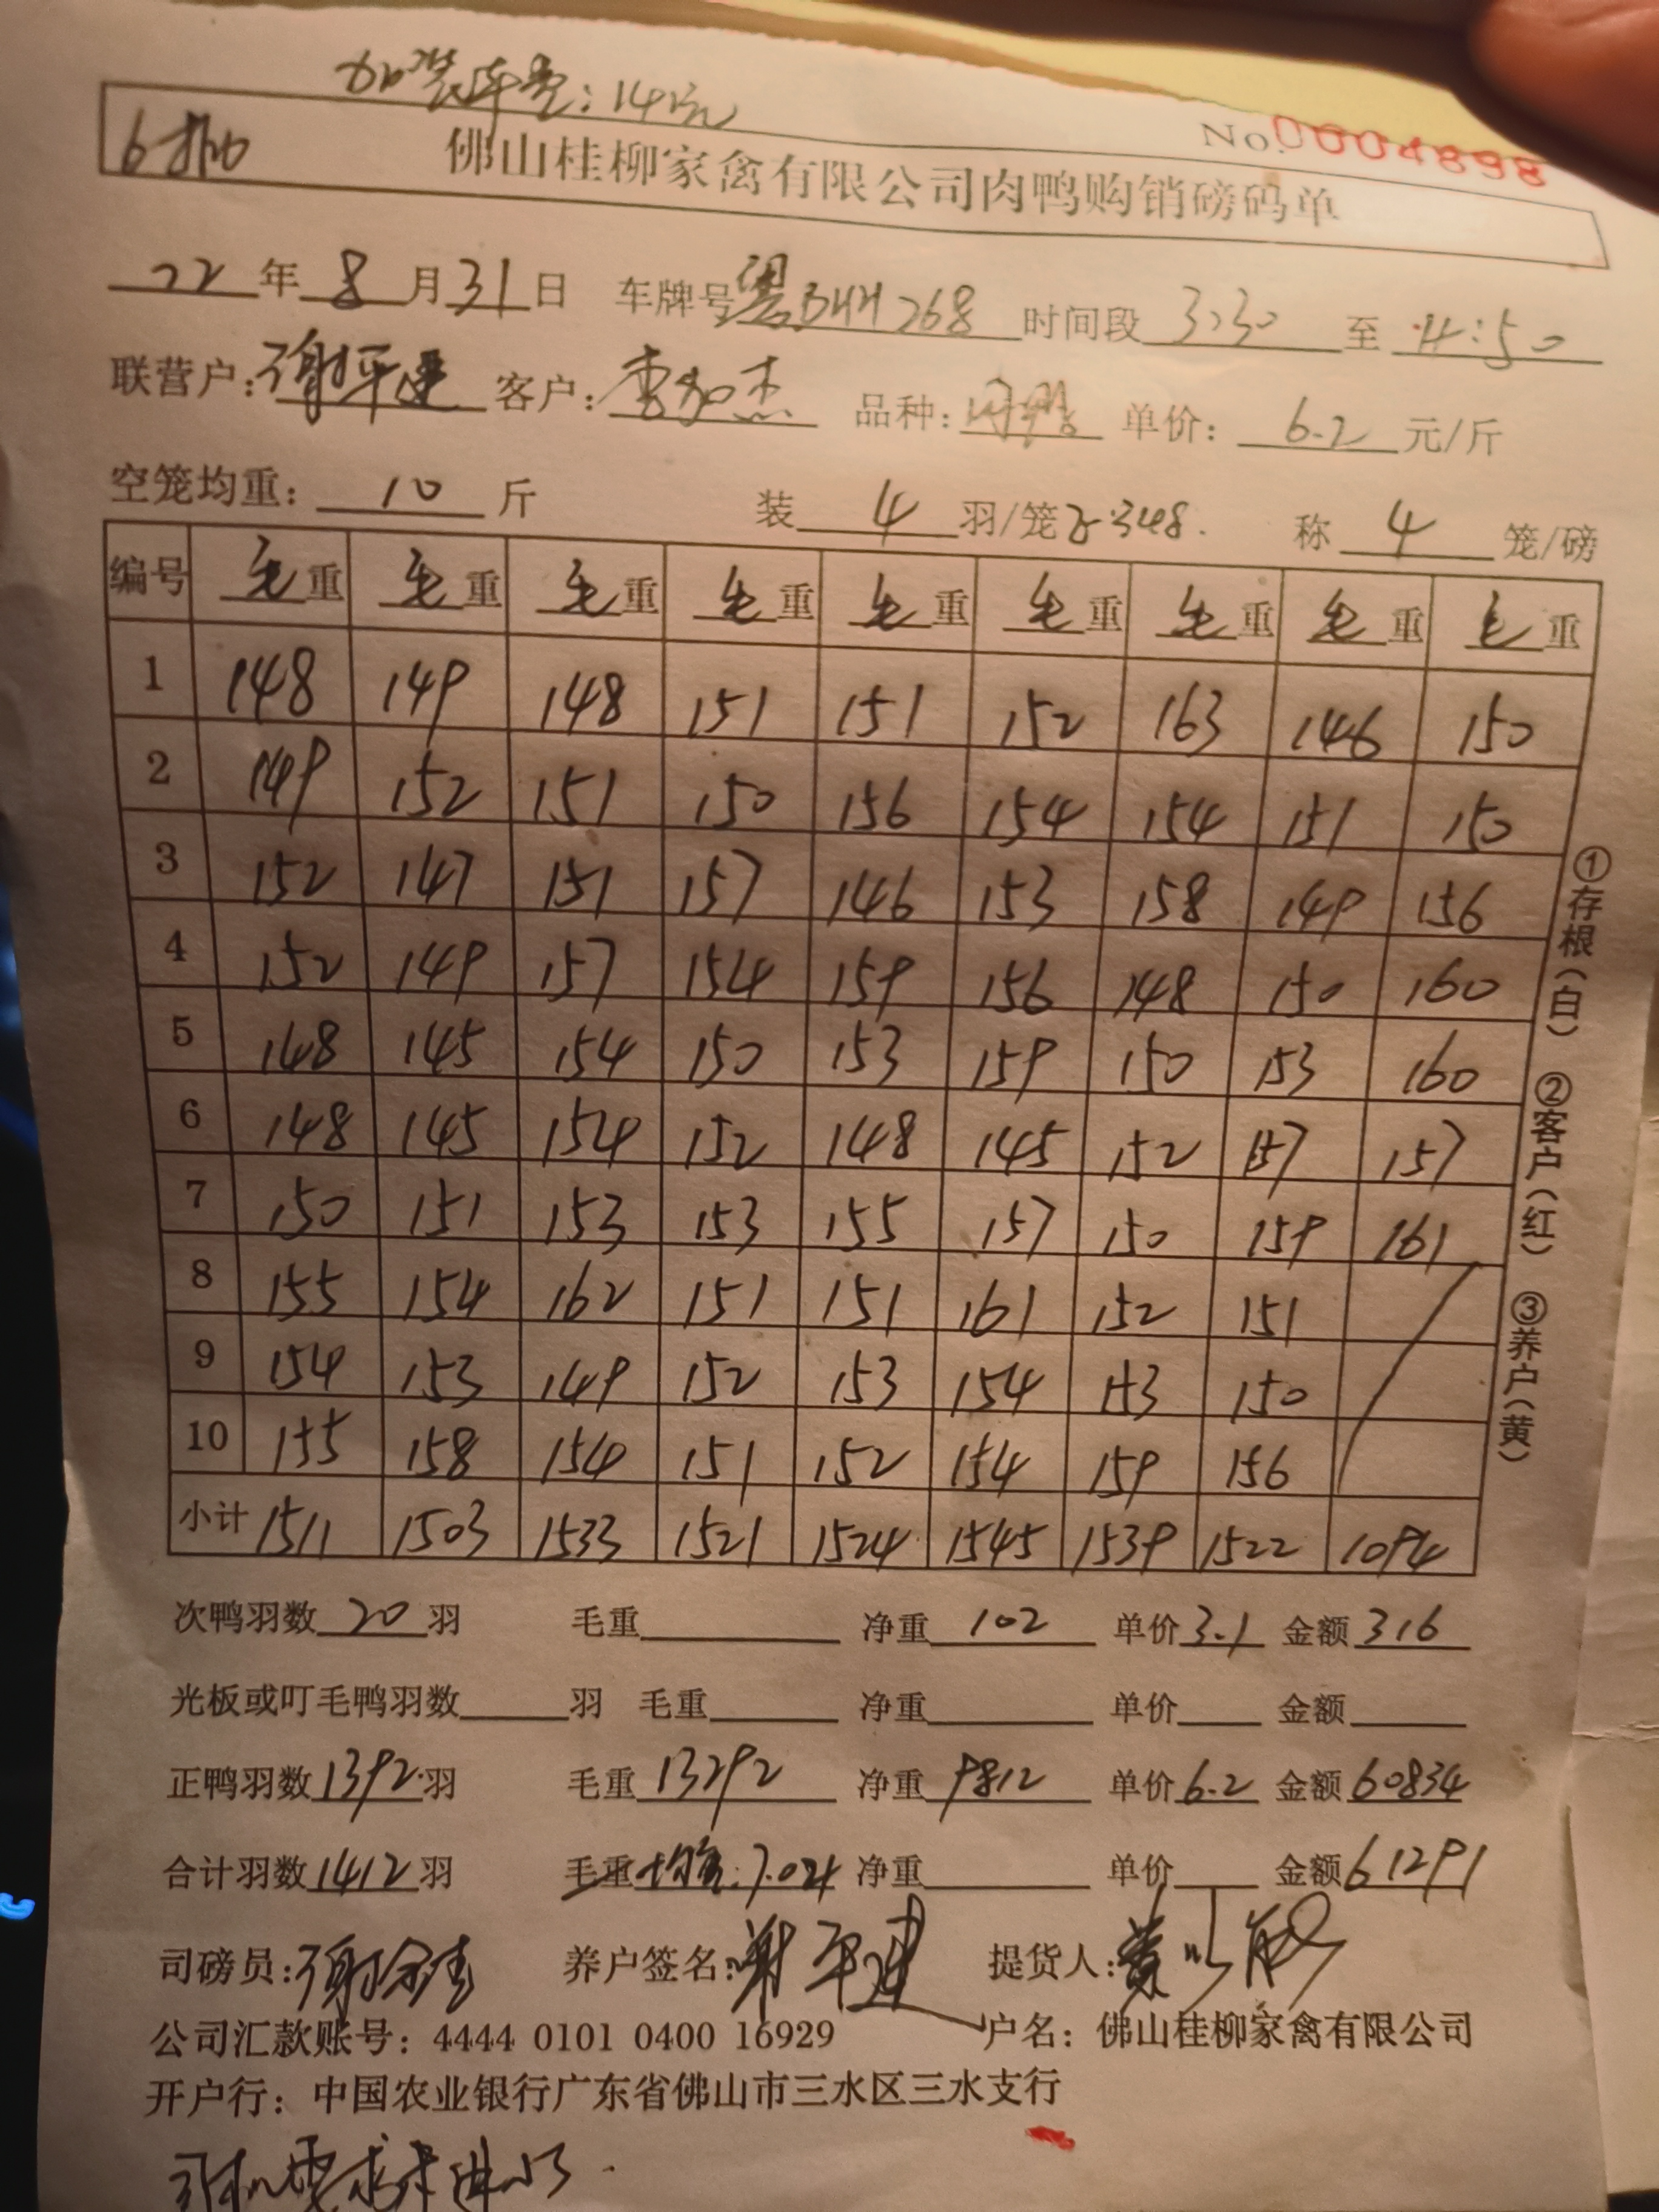 加装车费:141元
No.0004898
6加 佛山桂柳家禽有限公司肉鸭购销磅码单
22年8月31日 车牌号 粤 268 时间段 3:30 至 4:50
联营户:谢平建 客户:李加杰 品种: 单价:6.2元/斤
空笼均重:10斤 装4羽/笼 348. 称4笼/磅
编号 毛重 毛重 毛重 毛重 毛重 毛重 毛重 毛重 毛重
1 148 149 148 151 151 152 163 146 150
2 149 152 151 150 156 154 154 151 150
3 152 147 151 157 146 153 158 149 156
4 152 149 157 154 159 156 148 150 160
5 148 145 154 150 153 159 150 153 160
6 148 145 154 152 148 145 152 157 157
7 150 151 153 153 155 157 150 159 161
8 155 154 162 151 151 161 152 151
9 154 153 149 152 153 154 153 150
10 155 158 154 151 152 154 159 156
小计 1511 1503 1533 1521 1524 1545 1539 1522 1094
①存根(白) ②客户(红) ③养户(黄)
次鸭羽数20羽 毛重 净重102 单价3.1 金额316
光板或叮毛鸭羽数 羽 毛重 净重 单价 金额
正鸭羽数1392羽 毛重13292 净重9812 单价6.2 金额60834
合计羽数1412羽 毛重 均重:7.04 净重 单价 金额61291
司磅员:谢 养户签名:谢平建 提货人:黄
公司汇款账号:4444 0101 0400 16929 户名:佛山桂柳家禽有限公司
开户行:中国农业银行广东省佛山市三水区三水支行
司机要求